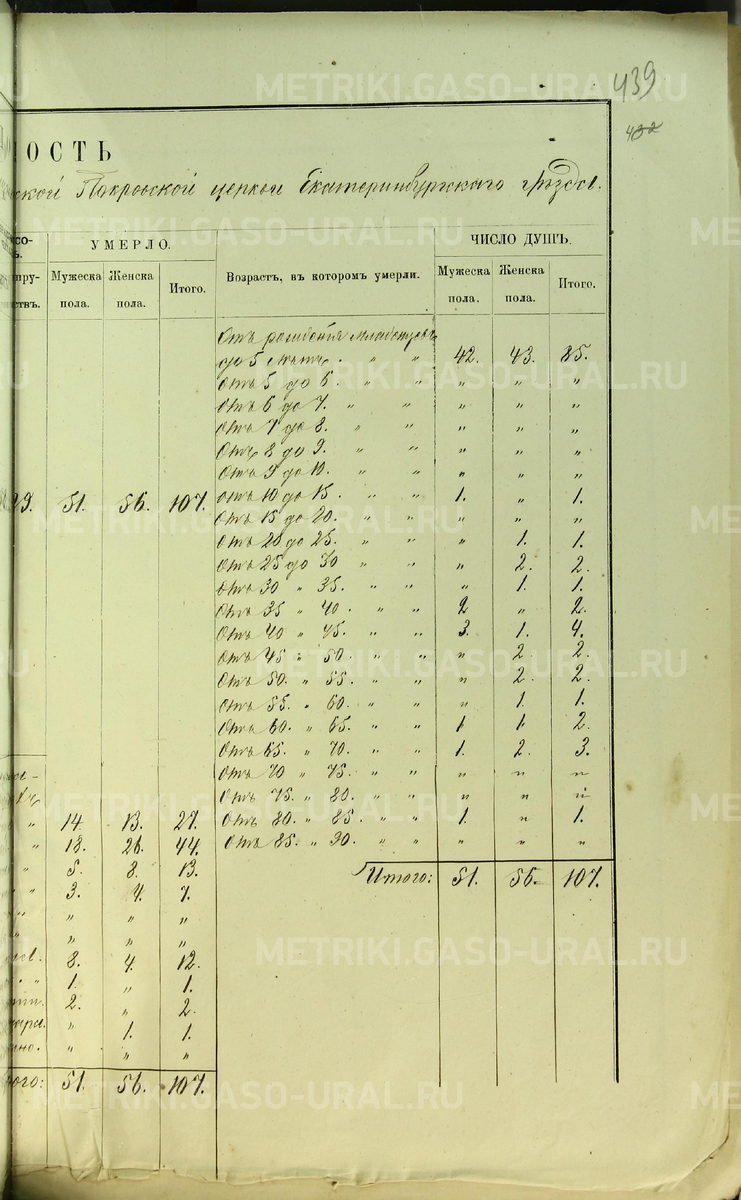 439
402
ОСТЬ
ской Покровской церкви Екатеринбургскаго уѣзда.
УМЕРЛО.
ЧИСЛО ДУШЪ.
Мужеска пола. Женска пола. Итого. Возрастъ, въ котором умерли. Мужеска пола. Женска пола. Итого.
Отъ рождения младенцевъ
до 5 лѣтъ . " " 42. 43. 85.
Отъ 5 до 6. " " " " "
Отъ 6 до 7. " " " " "
Отъ 7 до 8. " " " " "
Отъ 8 до 9. " " " " "
Отъ 9 до 10. " " " " "
29. 51. 56. 107. Отъ 10 до 15. " " 1. " 1.
Отъ 15 до 20. " " " " "
Отъ 20 до 25. " " " 1. 1.
Отъ 25 до 30 " " " 2. 2.
Отъ 30 " 35. " " " 1. 1.
Отъ 35 " 40. " " 2 " 2.
Отъ 40 " 45. " " 3. 1. 4.
Отъ 45 " 50. " " " 2 2.
Отъ 50. " 55. " " " 2. 2.
Отъ 55. " 60. " " " 1. 1.
Отъ 60. " 65. " " 1. 1. 2.
Отъ 65. " 70. " " 1. 2. 3.
Отъ 70 " 75. " " " " "
Отъ 75. " 80. " " " " "
" 14. 13. 27. Отъ 80. " 85. " " 1. " 1.
" 18. 26. 44. Отъ 85. " 90. " " " " "
" 5. 8. 13.
Итого: 51. 56. 107.
" " 3. 4. 7.
" " " " "
" " " "
8. 4. 12.
" 1. " 1.
2. " 2.
" 1. 1.
" " "
того: 51. 56. 107.
METRIKI.GASO-URAL.RU